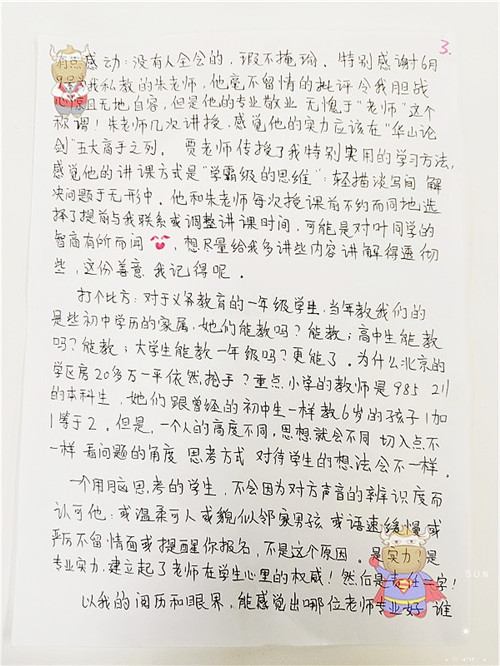 3.
有点感动:没有人全会的,瑕不掩瑜。特别感谢6月
我私教的朱老师,他毫不留情的批评令我胆战
心惊且无地自容,但是他的专业敬业 无愧于“老师”这个
称谓!朱老师几次讲授,感觉他的实力应该在“华山论
剑”五大高手之列。贾老师传授了我特别实用的学习方法,
感觉他的讲课方式是“学霸级的思维”:轻描淡写间 解
决问题于无形中。他和朱老师每次授课前不约而同地选
择了提前与我联系或调整讲课时间,可能是对叶同学的
智商有所耳闻,想尽量给我多讲些内容讲解得透彻
些,这份善意 我记得呢。
打个比方:对于义务教育的一年级学生,当年教我们的
是些初中学历的家属,她们能教吗?能教;高中生能教
吗?能教;大学生能教一年级吗?更能了。为什么北京的
学区房20多万一平依然抢手?重点小学的教师是985 211
的本科生,她们跟曾经的初中生一样教6岁的孩子1加
1等于2。但是,一个人的高度不同,思想就会不同 切入点不
一样 看问题的角度 思考方式 对待学生的想法会不一样。
一个用脑思考的学生,不会因为对方声音的辨识度而
认可他:或温柔可人或貌似邻家男孩 或语速缓慢或
严厉不留情面或提醒你报名,不是这个原因。是实力!是
专业实力,建立起了老师在学生心里的权威!然后是责任一字!
以我的阅历和眼界,能感觉出哪位老师专业好 谁